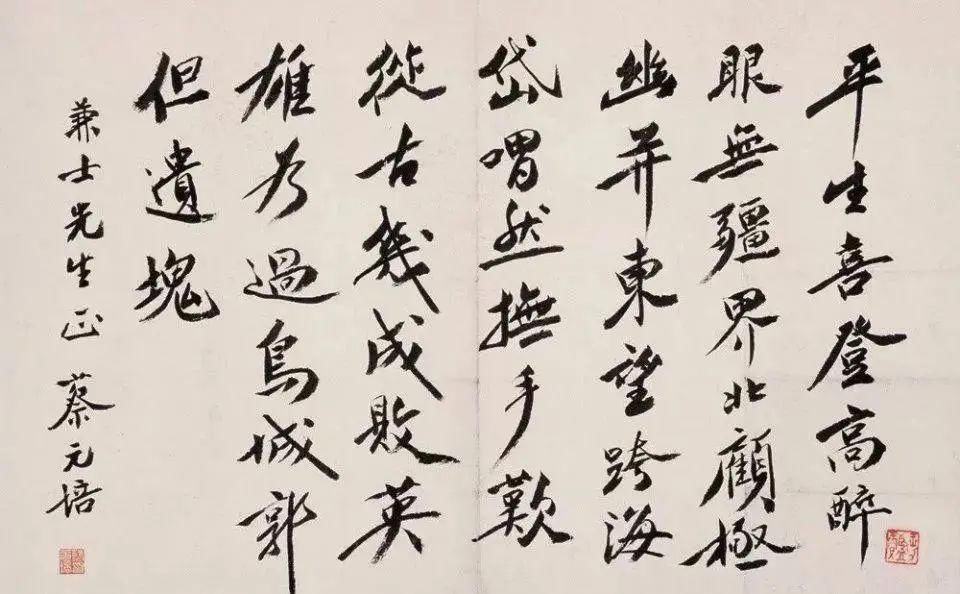 平生喜登高醉
眼無疆界北顧極
幽并東望跨海
岱喟然撫手歎
從古幾成敗英
雄為過鳥城郭
但遺塊
兼士先生正 蔡元培